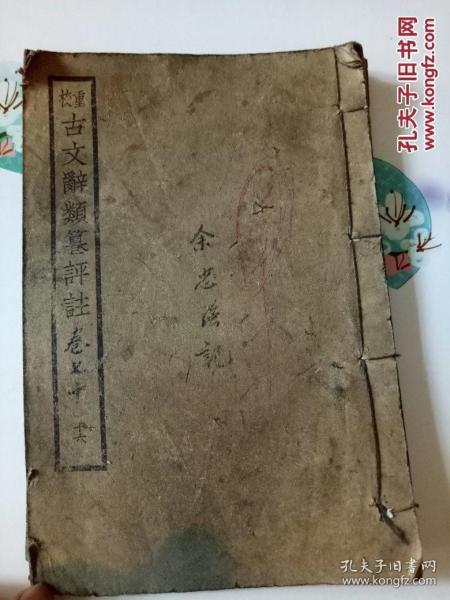 重校
古文辭類纂評註
十六
余忠
記
孔夫子旧书网
www.kongfz.com
孔夫子旧书网
www.kongfz.com